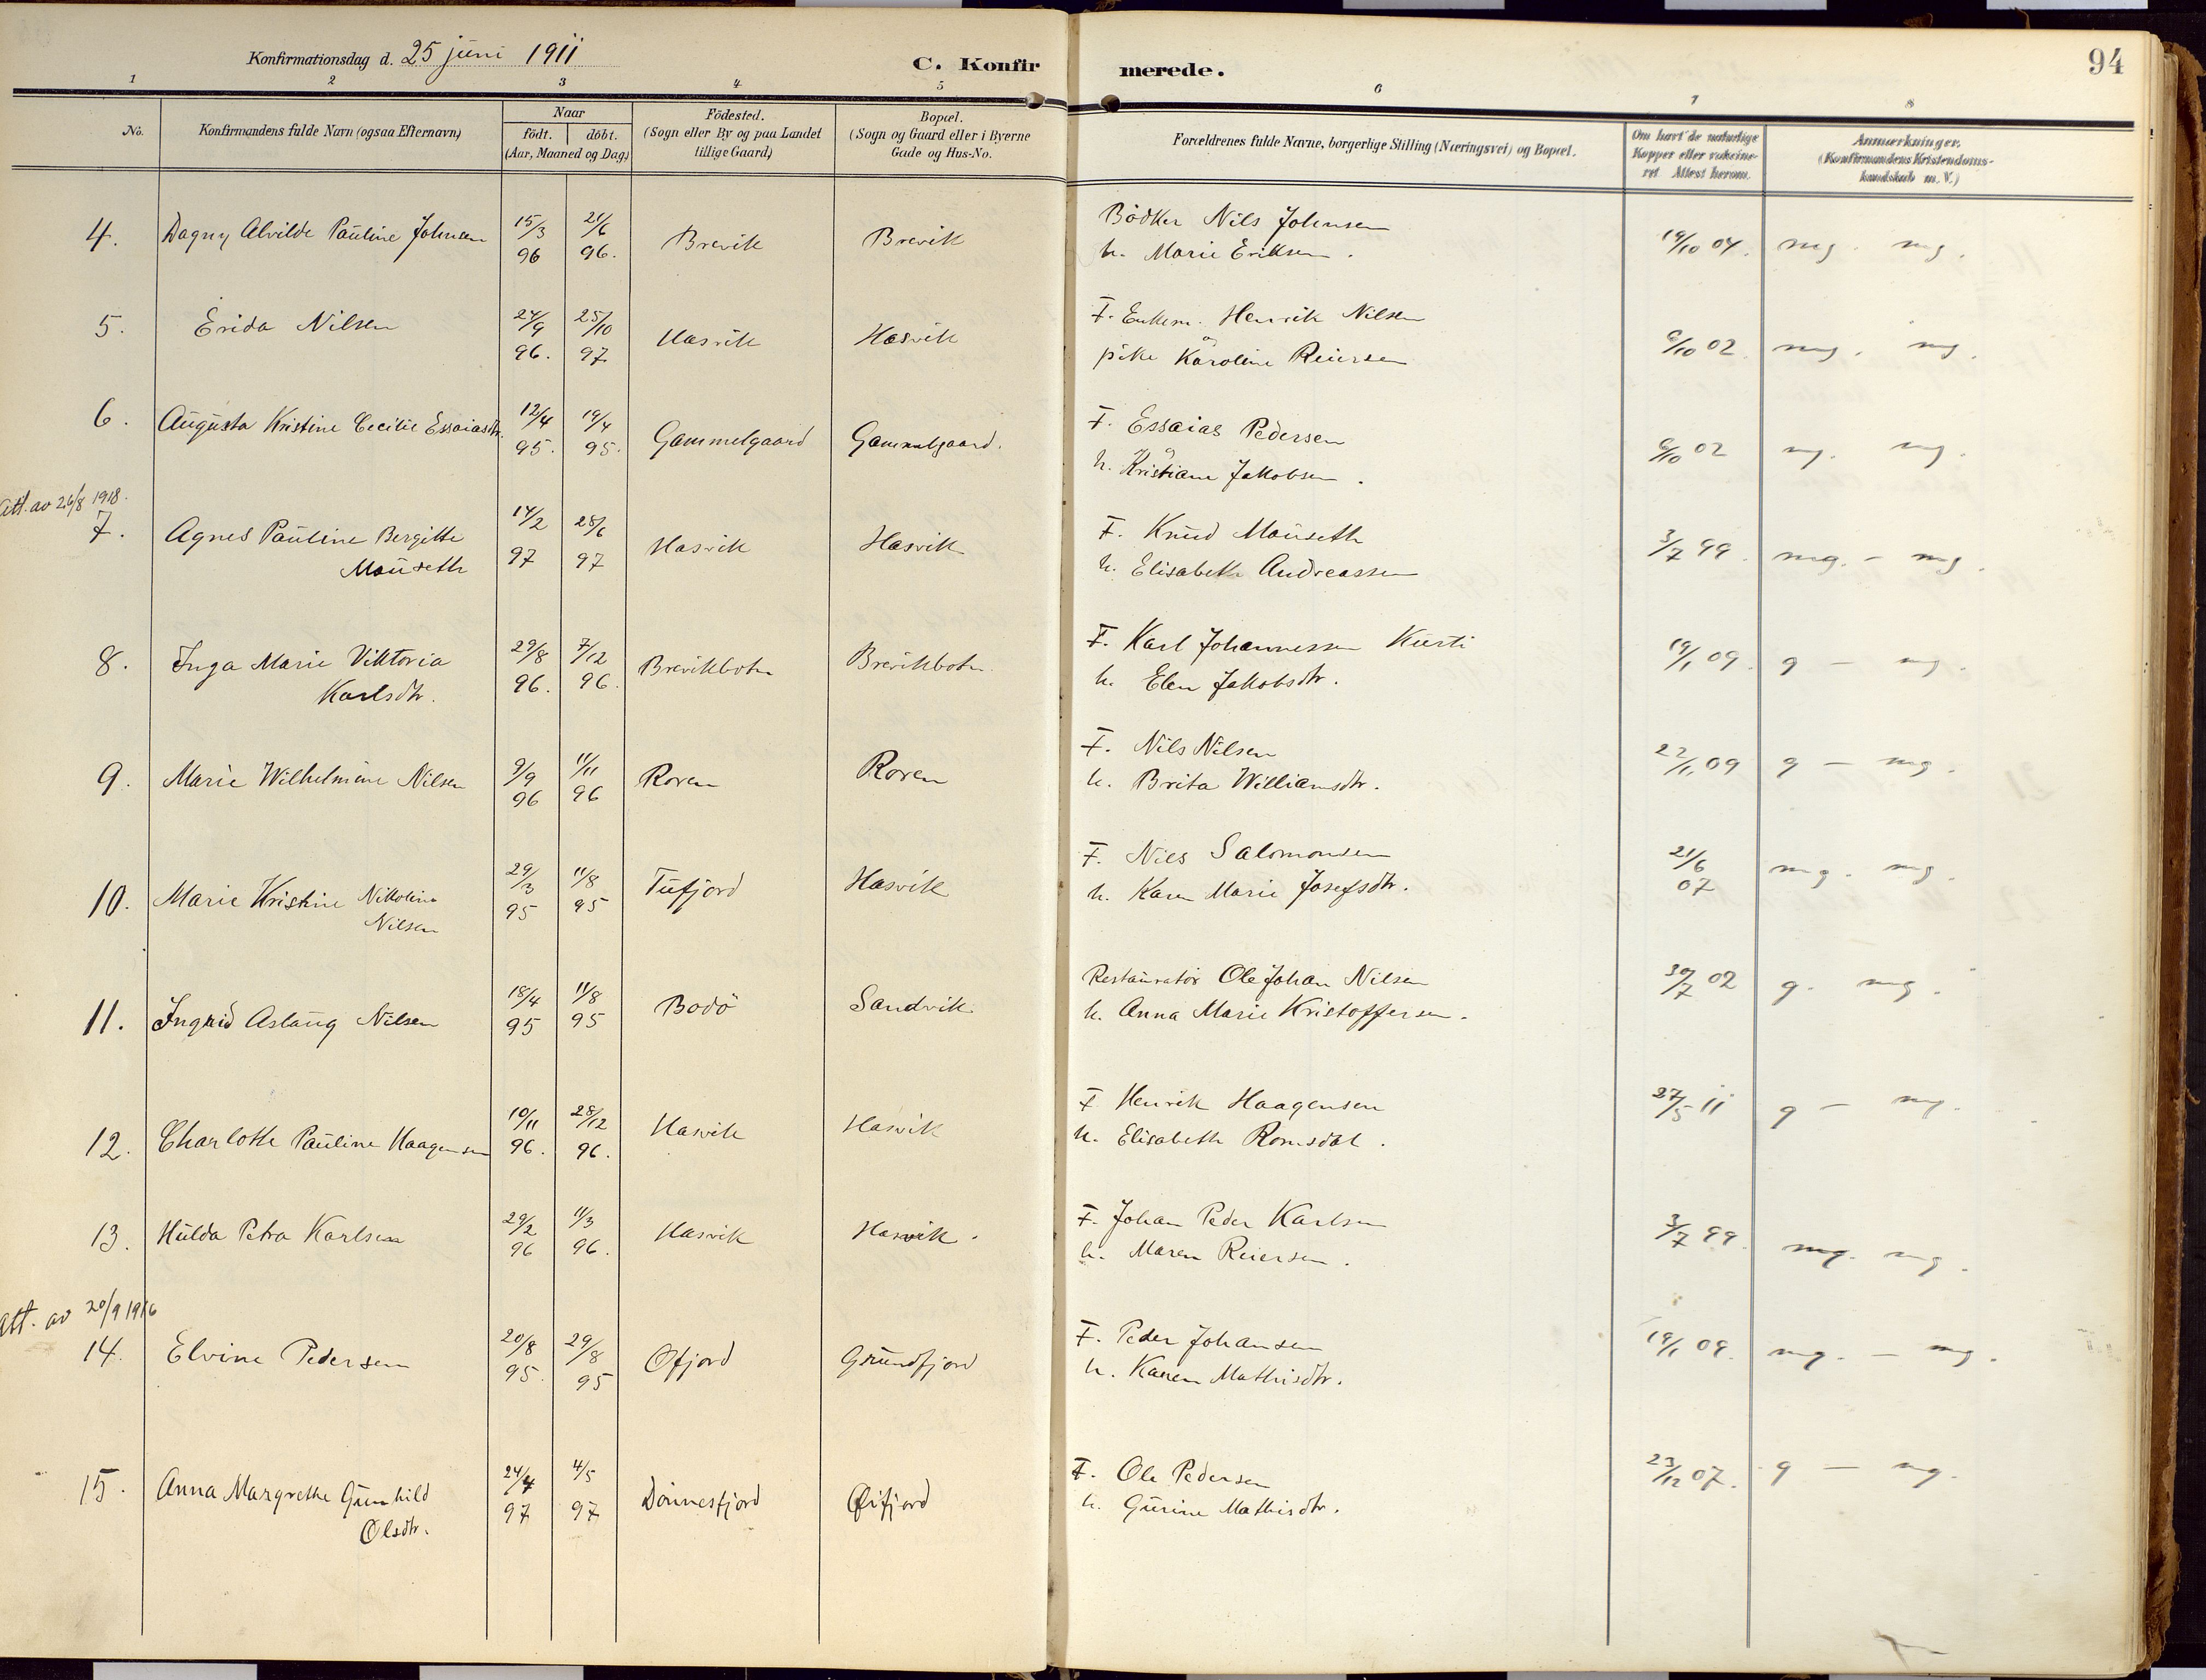 Konfirmationsdag d. 25 juni 1911
C. Konfirmerede.
94
1 2 3 4 5 6 7 8
No.
Konfirmandens fulde Navn (ogsaa Efternavn)
Naar
födt. döbt.
(Aar, Maaned og Dag)
Födested.
(Sogn eller By og paa Landet
tillige Gaard)
Bopæl.
(Sogn og Gaard eller i Byerne
Gade og Hus-No.
Forældrenes fulde Navne, borgerlige Stilling (Næringsvei) og Bopæl.
Om havt de naturlige
Kopper eller vakcine-
ret. Attest herom.
Anmærkninger.
(Konfirmandens Kristendoms-
kundskab m. V.)
4. Dagny Alvilde Pauline Johnsen 15/3 96 21/6 96. Brevik Brevik Bödker Nils Johnsen 19/10 04. mg. mg.
h. Marie Eriksen.
5. Erida Nilsen 24/9 96. 25/10 97 Hasvik Hasvik F. Enkem. Henrik Nilsen 6/10 02. mg. mg.
pike Karoline Reiersen
6. Augusta Kristine Cecilie Essaiasdtr. 12/4 95. 19/4 95. Gammelgaard Gammelgaard. F. Essaias Pedersen 6/10 02 mg. mg.
h. Kristiane Jakobsen.
Att. av 26/8 1918.
7. Agnes Pauline Bergitte 14/2 97 28/6 97 Hasvik Hasvik F. Knud Mauseth 3/7 99. mg. - mg.
Mauseth h. Elisabeth Andreassen
8. Inga Marie Viktoria 29/8 96. 7/12 96. Brevikbotn Brevikbotn F. Karl Johannessen Kurti 19/1 09. g - mg.
Karlsdtr. h. Elen Jakobsdtr.
9. Marie Wilhelmine Nilsen 9/9 96 11/11 96 Roven Roven F. Nils Nilsen 22/1 09 g - mg.
h. Brita Williamsdtr.
10. Marie Kristine Nikoline 29/3 95 11/8 95 Tufjord Hasvik F. Nils Salomonsen 21/6 07 mg. mg.
Nilsen h. Karen Marie Josefsdtr.
11. Ingrid Aslaug Nilsen 18/4 95 11/8 95 Bodö Sandvik Restauratör Ole Johan Nilsen 30/7 02 g. mg.
h. Anna Marie Kristoffersen.
12. Charlotte Pauline Haagensen 10/11 96. 28/12 96. Hasvik Hasvik F Henrik Haagensen 27/5 11 g - mg.
h. Elisabeth Romsdal.
13. Hulda Petra Karlsen 29/2 96 11/3 96. Hasvik Hasvik. F. Johan Peder Karlsen 3/7 99. mg. mg.
h. Maren Reiersen.
Att. av 20/9 1916
14. Elvine Pedersen 20/8 95. 29/8 95 Öfjord Grundfjord F. Peder Johansen 19/1 09. mg. - mg.
h. Karen Mathisdtr.
15. Anna Margrethe Gunhild 24/4 97 4/5 97 Dönnesfjord Öifjord F. Ole Pedersen 23/12 07. g - mg.
Olsdtr. h. Gurine Mathisdtr.